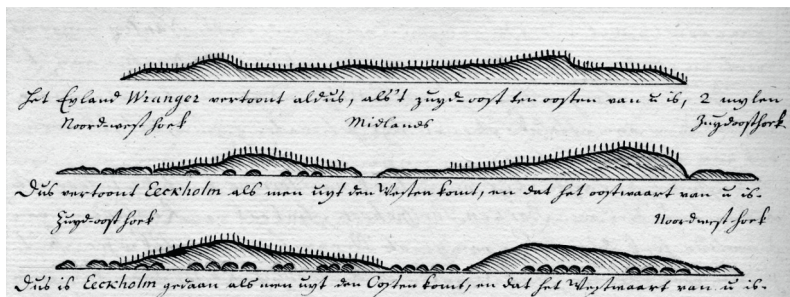 Het Eyland Wranger vertoont aldus, als't zuyd-oost ten oosten van u is, 2 mylen
Noord-west hoek Midlands Zuydoosthoek.
Dus vertoont Eeckholm als men uyt den Westen komt, en dat het oostwaart van u is.
Zuyd-oost hoek Noordwest hoek
Dus is Eeckholm gedaan als men uyt den Oosten komt, en dat het Westwaart van u is.